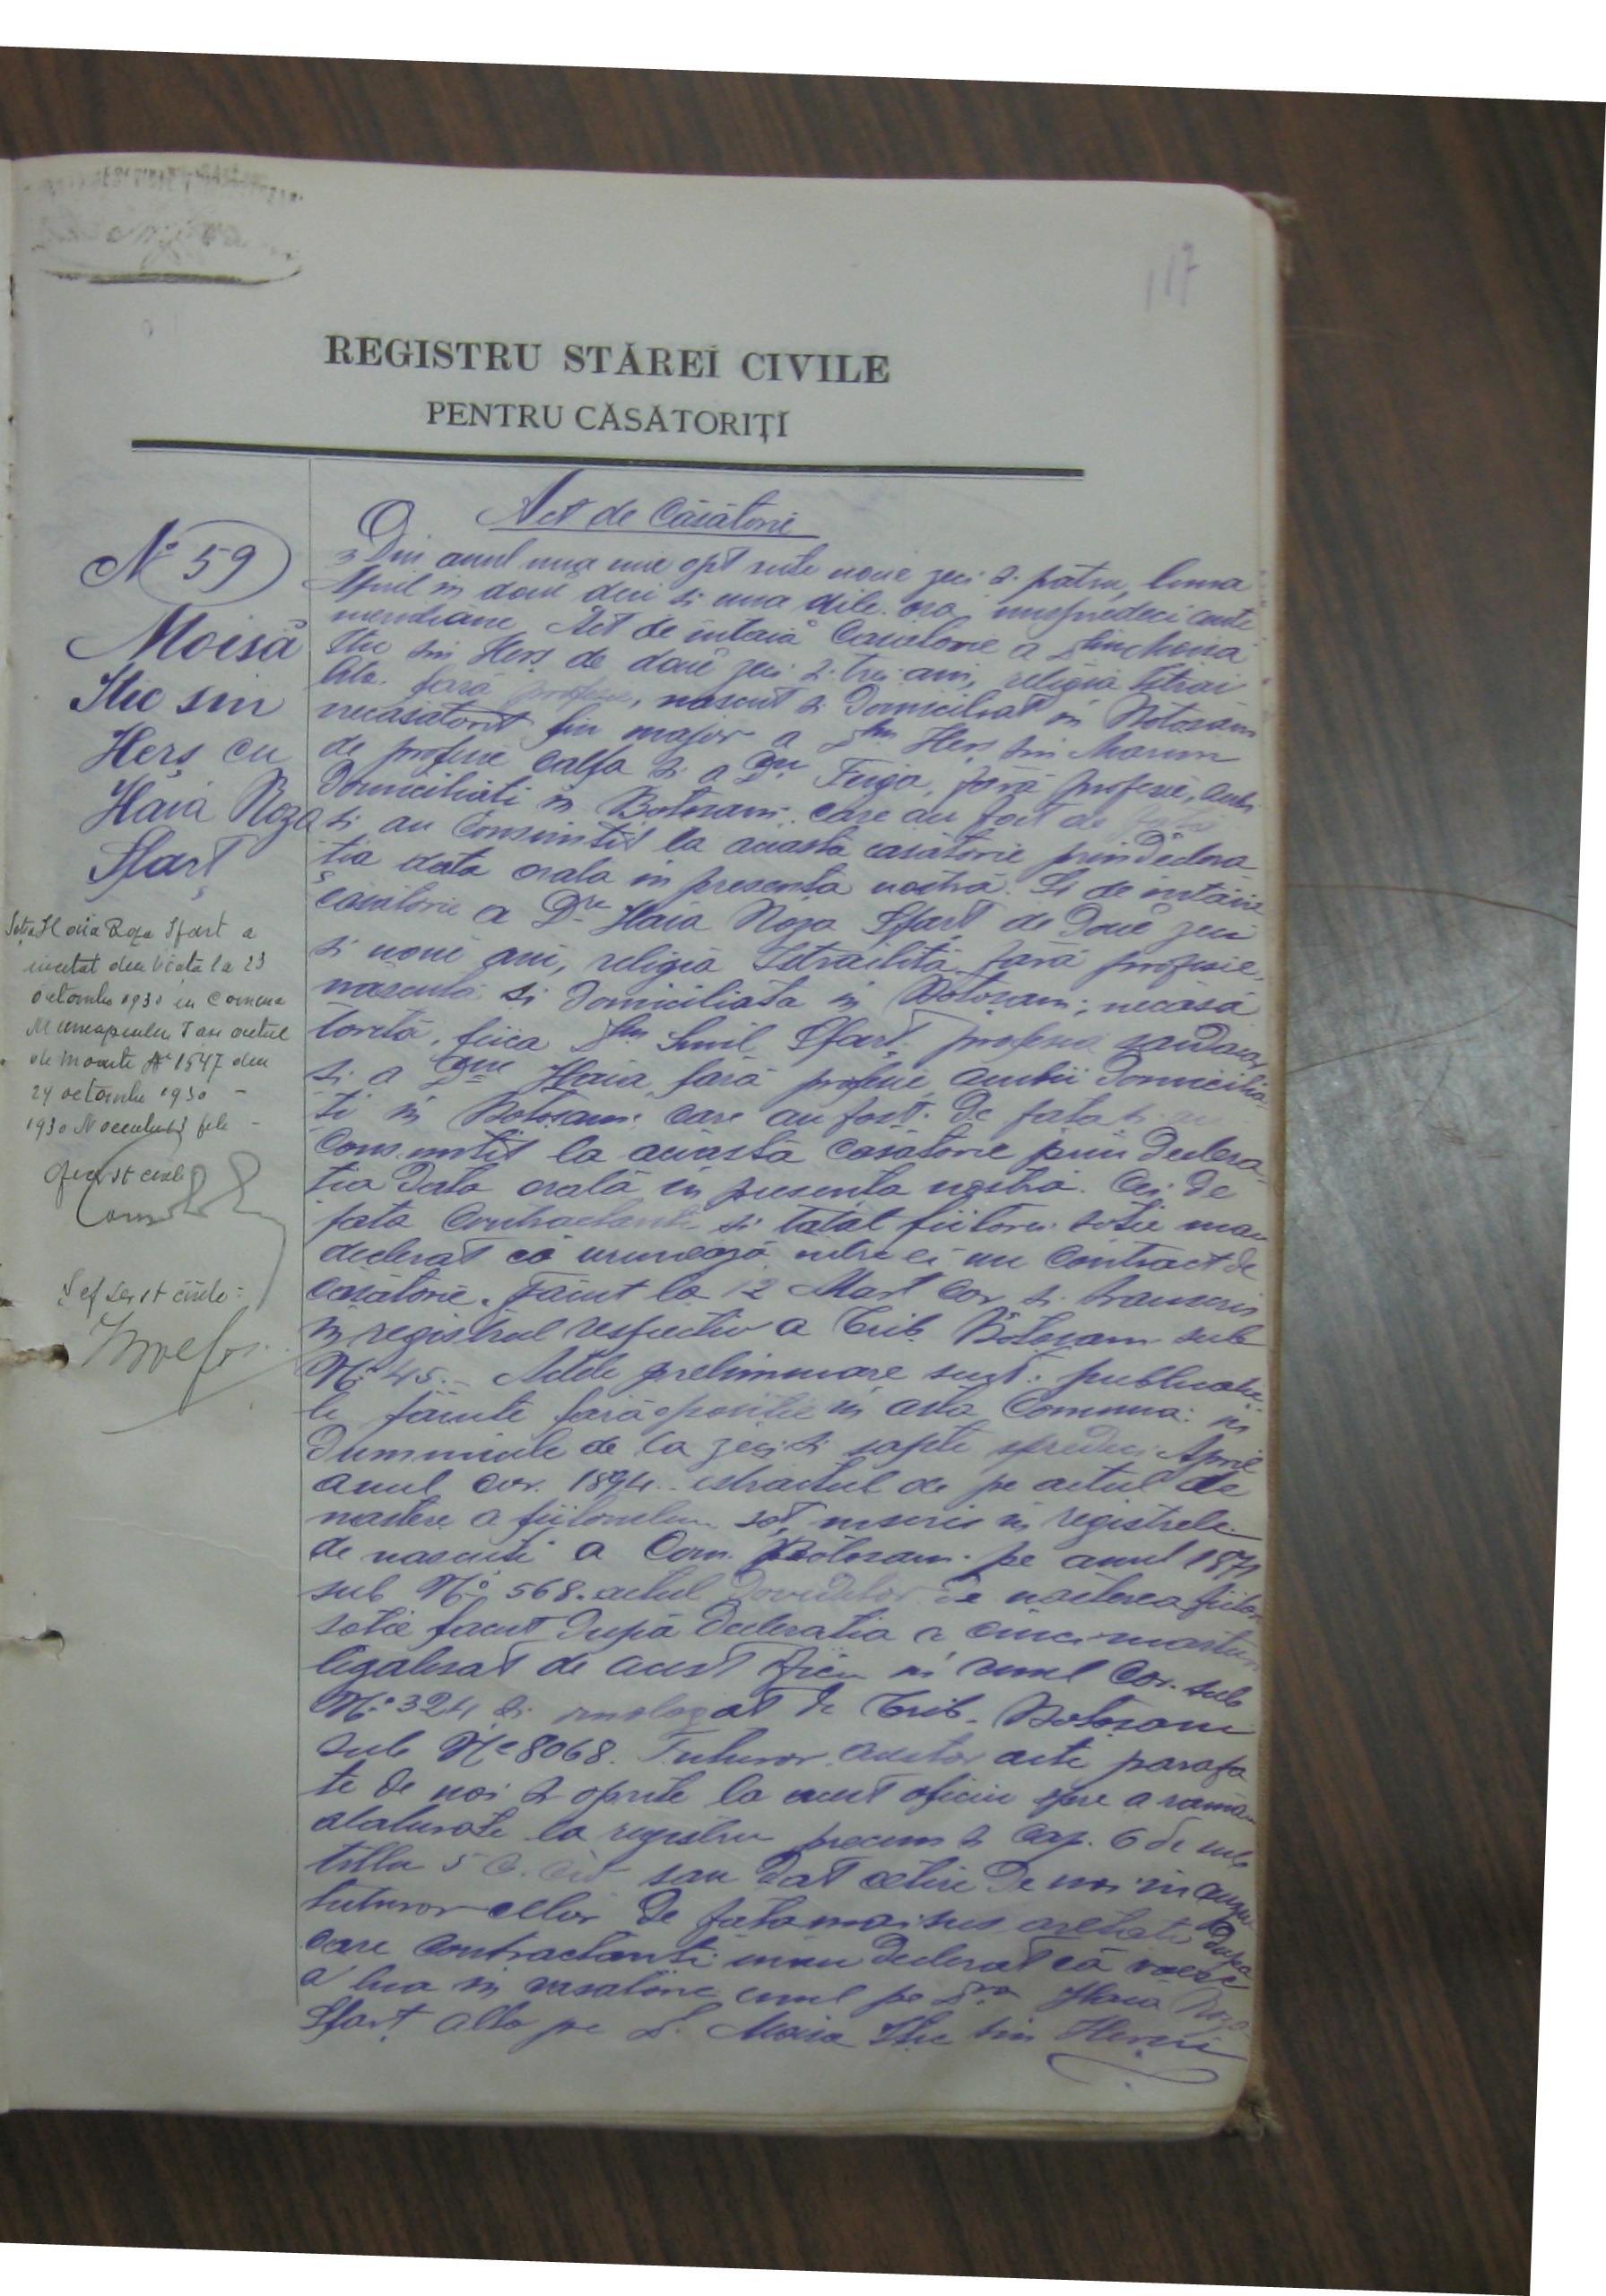 117
REGISTRU STĂREĬ CIVILE
PENTRU CĂSĂTORIȚĬ
Nº 59
Moisă
Ițic sin
Herș cu
Haia Roza
Sfarț
Soția Haia Roza Sfart a
incetat din viata la 23
octombr 1930 in Comuna
Municipiului Iasi actul
de moarte Nº 1547 din
24 octombr 1930 -
1930 Noembrie
Of st civile
Sef Ser st civile:
Act de Căsătorie
Din anul una mie opt sute noue zeci si patru, luna
April in doue deci si una dile. ora unspredeci ante
meridiane Act de intaia Casatorie a
Itic sin Herș de doue zeci si trei ani, religia Istrai
lita. fără profesie, nascut si domiciliat in Botosani
necasatorit fiu major a Dlui Herș sin
de profesie calfa si a Dnei Feiga, fără profesie, ambi
domiciliati in Botosani. care au fost de fata
si au consimtit la aceasta casatorie prin declara
tia data orala in presenta nostră. Si de intâia
căsătorie a Drei Haia Roza Sfarț de doue zeci
si noue ani, religia Istrailită, fără profesie,
născută si domiciliata in Botosani; necăsă
torită, fiica Dlui Smil Sfarț profesia
si a Dnei Haia fără profesie, ambii domicilia
ti in Botosani care au fost de fata si au
consimtit la aceasta casatorie prin declara
tia data orală in presenta nostră. Cei de
fata Contractanti si tatăl fiitorei sotie mau
declarat că urmează intre ei un contract de
casătorie. Făcut la 12 Mart cor. si transcris
in registrul respectiv a Trib. Botosani sub
Nº 45. - Actele preliminare sunt: publicatii
le făcute fără opozitie in asta Comuna: in
Duminicile de la zeci si sapte spredeci April
anul cor. 1894. estractul de pe actul de
nastere a fiitorului soț, inscris in registrele
de nascuti a Com. Botosani pe anul 1871
sub Nº 568. actul doveditor de nasterea fiitor
sotie facut dupa declaratia a cinci marturi
legalisat de acest oficiu in anul cor. sub
Nº 324 si omologat de Trib. Botosani
sub Nº 8068. Tuturor acestor acte parafa
te de noi si oprite la acest oficiu spre a rămăne
alaturate la registru precum si cap. 6 de sub
titlu 5 c. civ sau dat cetire de noi in auzul
tuturor celor de fata mai sus aretati Dupa
care contractanti miau declarat că voesc
a lua in casatorie, unul pe Dra Haia Roza
Sfarț alta pe D. Moisa Itic sin Herș